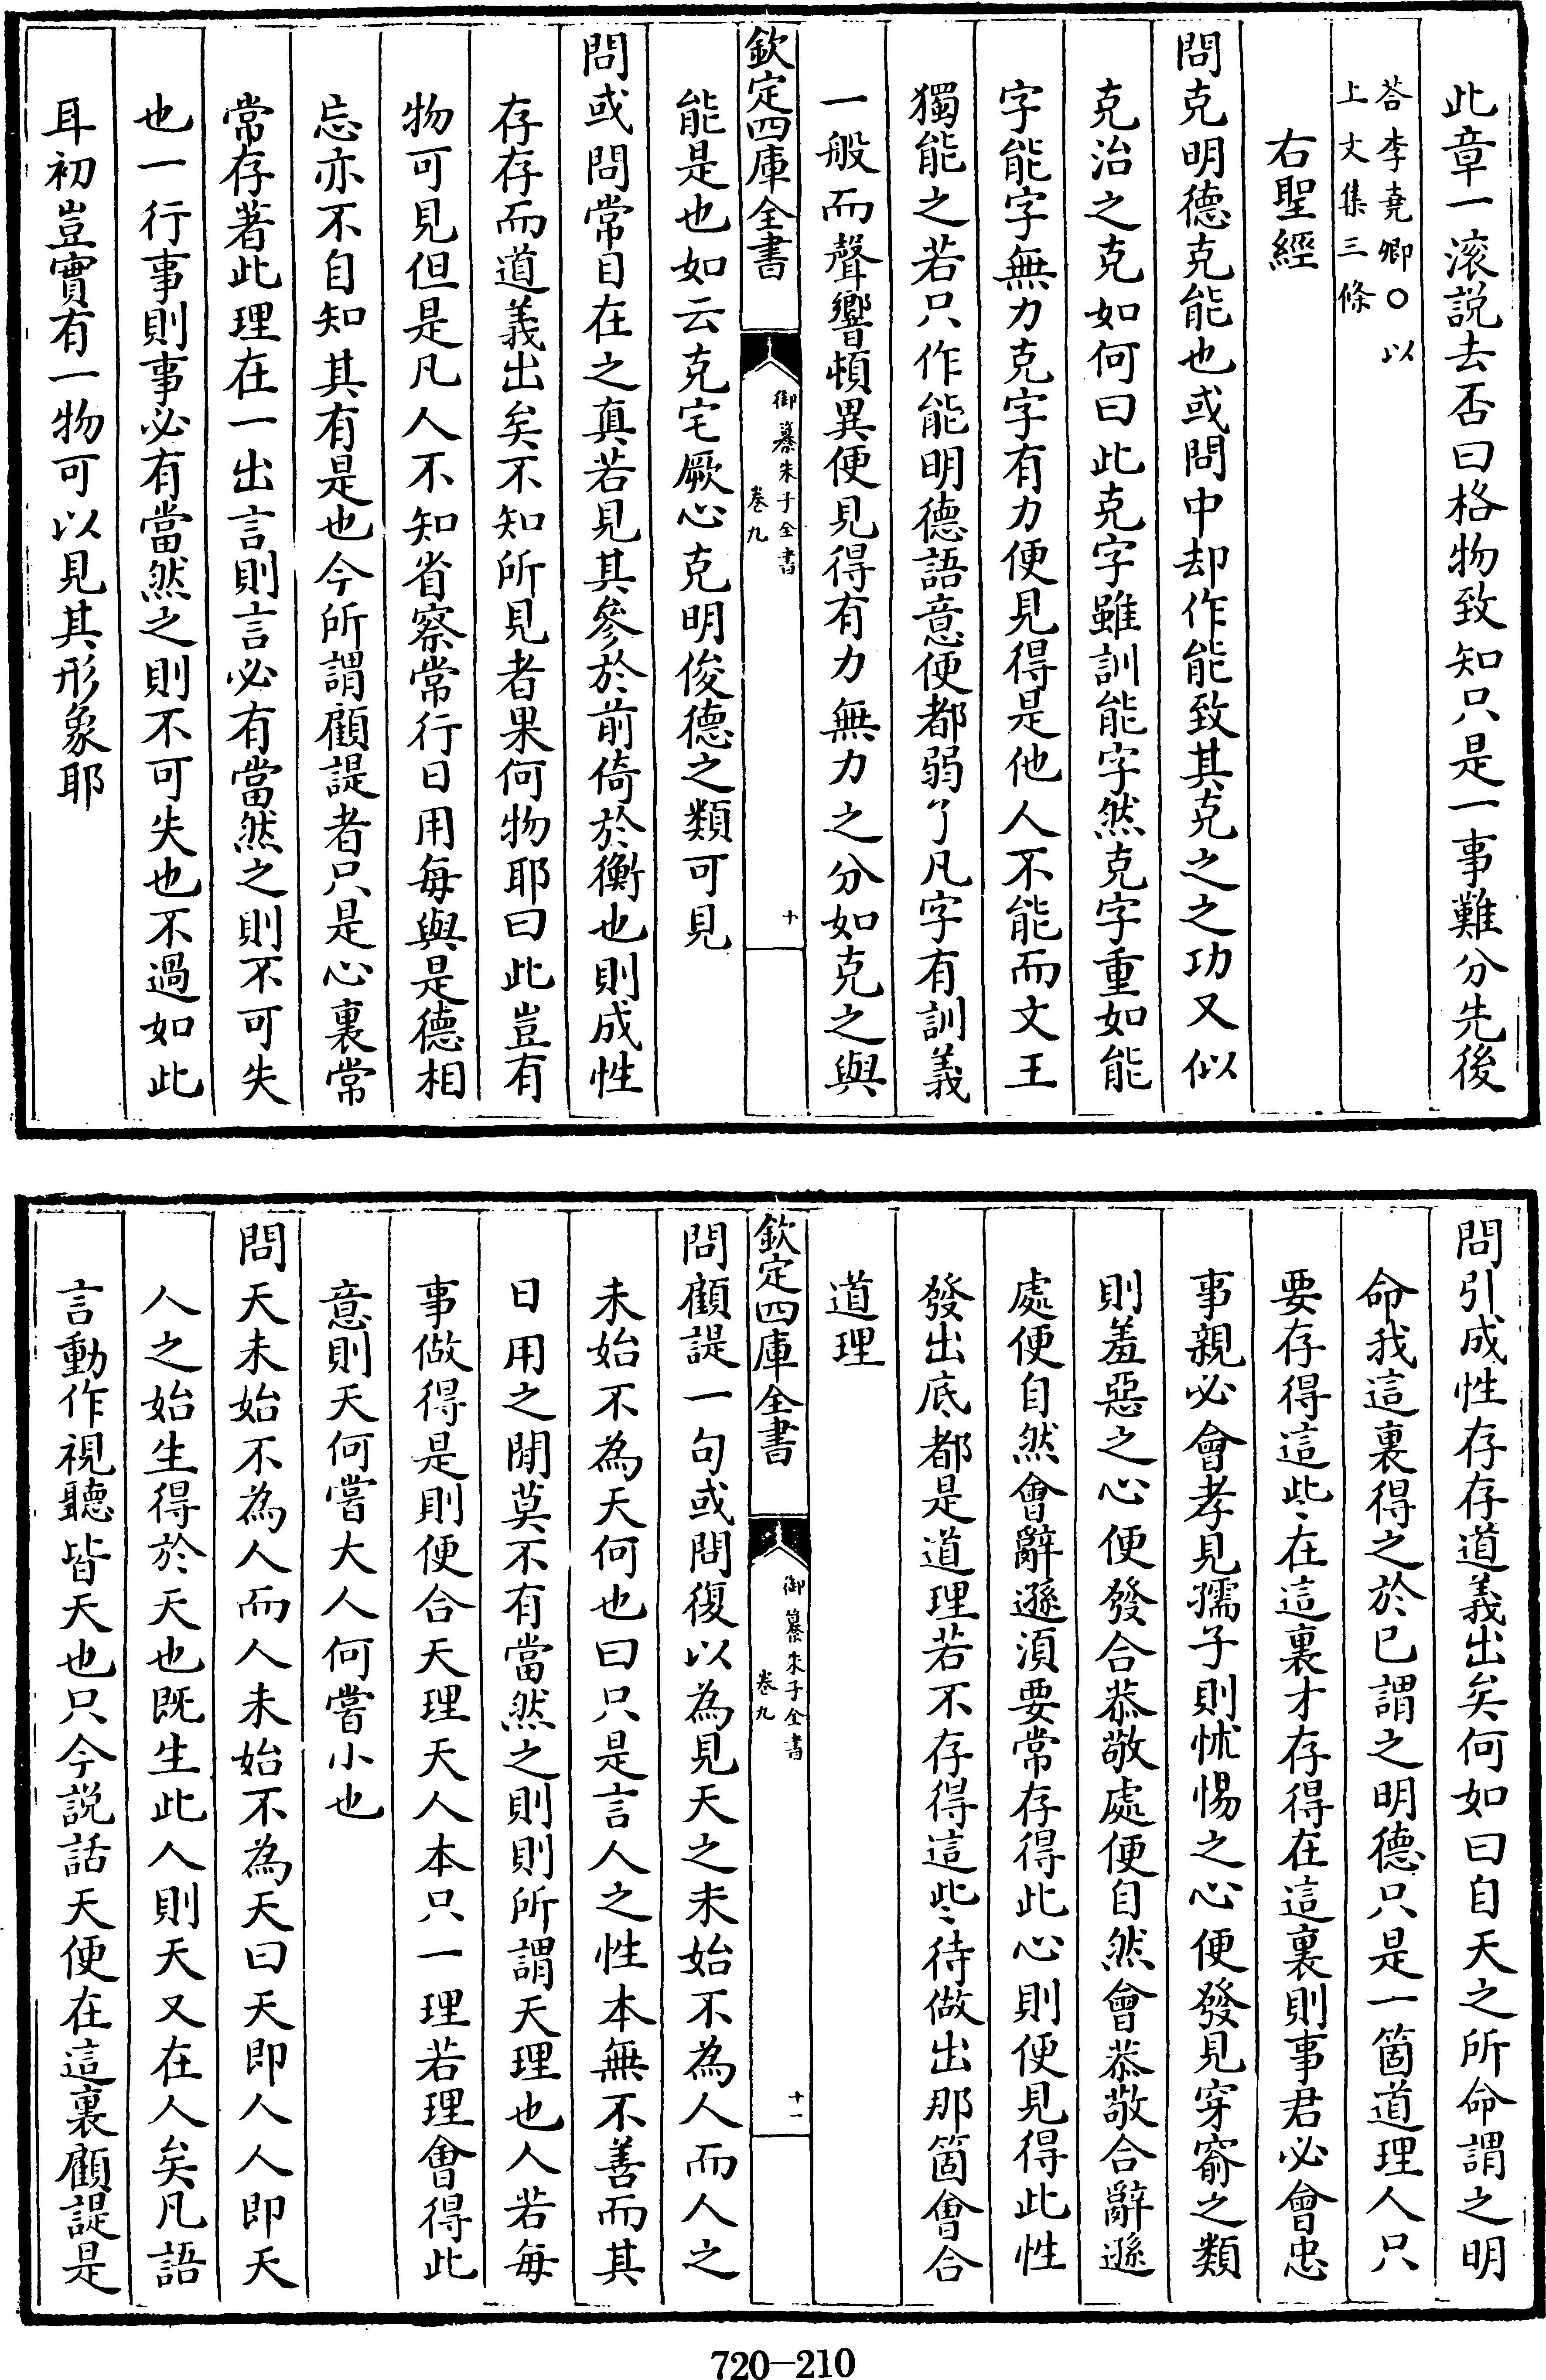 此章一滚説去否曰格物致知只是一事難分先後
荅李堯卿○以
上文集三條
右聖經
問克明德克能也或問中却作能致其克之之功又似
克治之克如何曰此克字雖訓能字然克字重如能
字能字無力克字有力便見得是他人不能而文王
獨能之若只作能明德語意便都弱了凡字有訓義
一般而聲響頓異便見得有力無力之分如克之與
欽定四庫全書
御纂朱子全書
卷九
十
能是也如云克宅厥心克明俊德之類可見
問或問常目在之真若見其參於前倚於衡也則成性
存存而道義出矣不知所見者果何物耶曰此豈有
物可見但是凡人不知省察常行日用每與是德相
忘亦不自知其有是也今所謂顧諟者只是心裏常
常存著此理在一出言則言必有當然之則不可失
也一行事則事必有當然之則不可失也不過如此
耳初豈實有一物可以見其形象耶
問引成性存存道義出矣何如曰自天之所命謂之明
命我這裏得之於己謂之明德只是一箇道理人只
要存得這些在這裏才存得在這裏則事君必會忠
事親必會孝見孺子則怵惕之心便發見穿窬之類
則羞惡之心便發合恭敬處便自然會恭敬合辭遜
處便自然會辭遜湏要常存得此心則便見得此性
發出底都是道理若不存得這些待做出那箇會合
道理
欽定四庫全書
御纂朱子全書
卷九
十一
問顧諟一句或問復以為見天之未始不為人而人之
未始不為天何也曰只是言人之性本無不善而其
日用之閒莫不有當然之則則所謂天理也人若每
事做得是則便合天理天人本只一理若理會得此
意則天何嘗大人何嘗小也
問天未始不為人而人未始不為天曰天即人人即天
人之始生得於天也既生此人則天又在人矣凡語
言動作視聽皆天也只今説話天便在這裏顧諟是
720-210